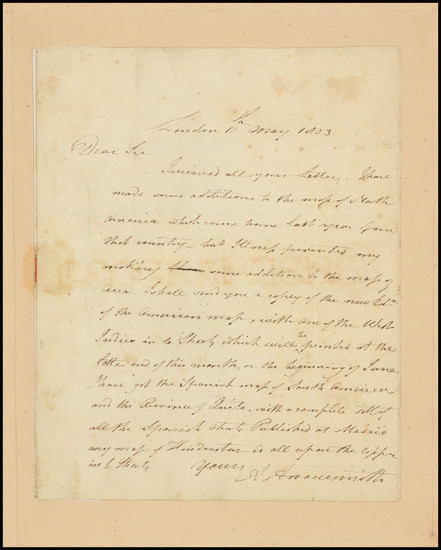 London 10th May 1803
Dear Sir
I received all your Letters. I have
made some additions to the map of North
America which came home last year from
that country but Illness prevented my
making some addition to the map of
asia. I shall send you a copy of the new Edn
of the American map, with one of the West
Indies in 4 Sheets, which will be printed at the
latter end of this month, or the beginning of June
I have got the Spanish map of South America
and the Province of Quito, with a complete Set of
all the Spanish Charts Published at Madrid
my map of Hindostan is all upon the Copper
in 6 Sheets Yours
A Arrowsmith